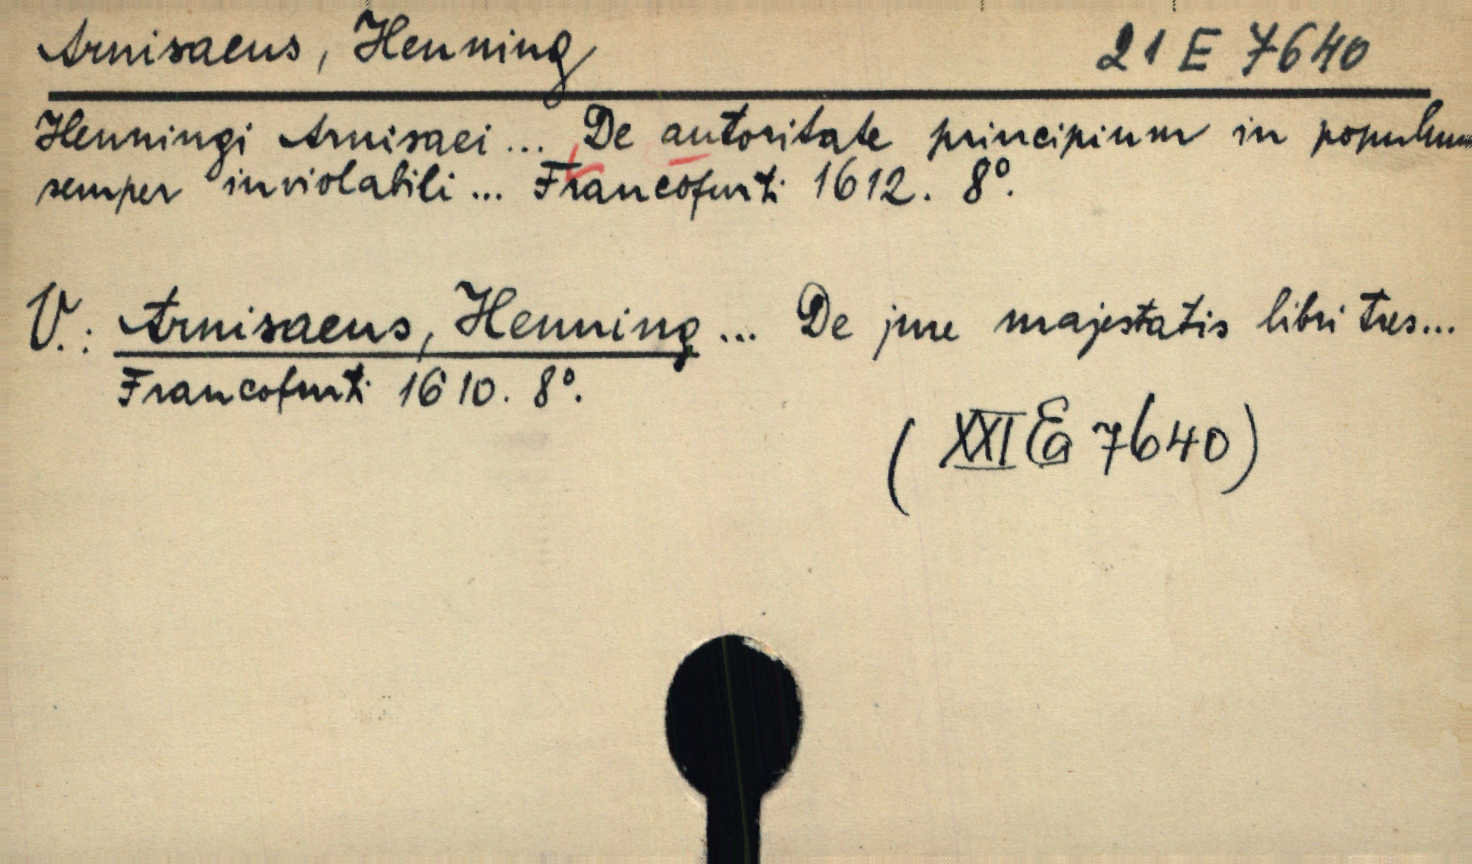 Arnisaeus, Henning 21 E 7640
Henningi Arnisaei ... De autoritate principium in populum
semper inviolabili ... Francofurti 1612. 8°.
V.: Arnisaeus, Henning ... De jure majestatis libri tres...
Francofurti 1610. 8°.
( XXI Ea 7640)